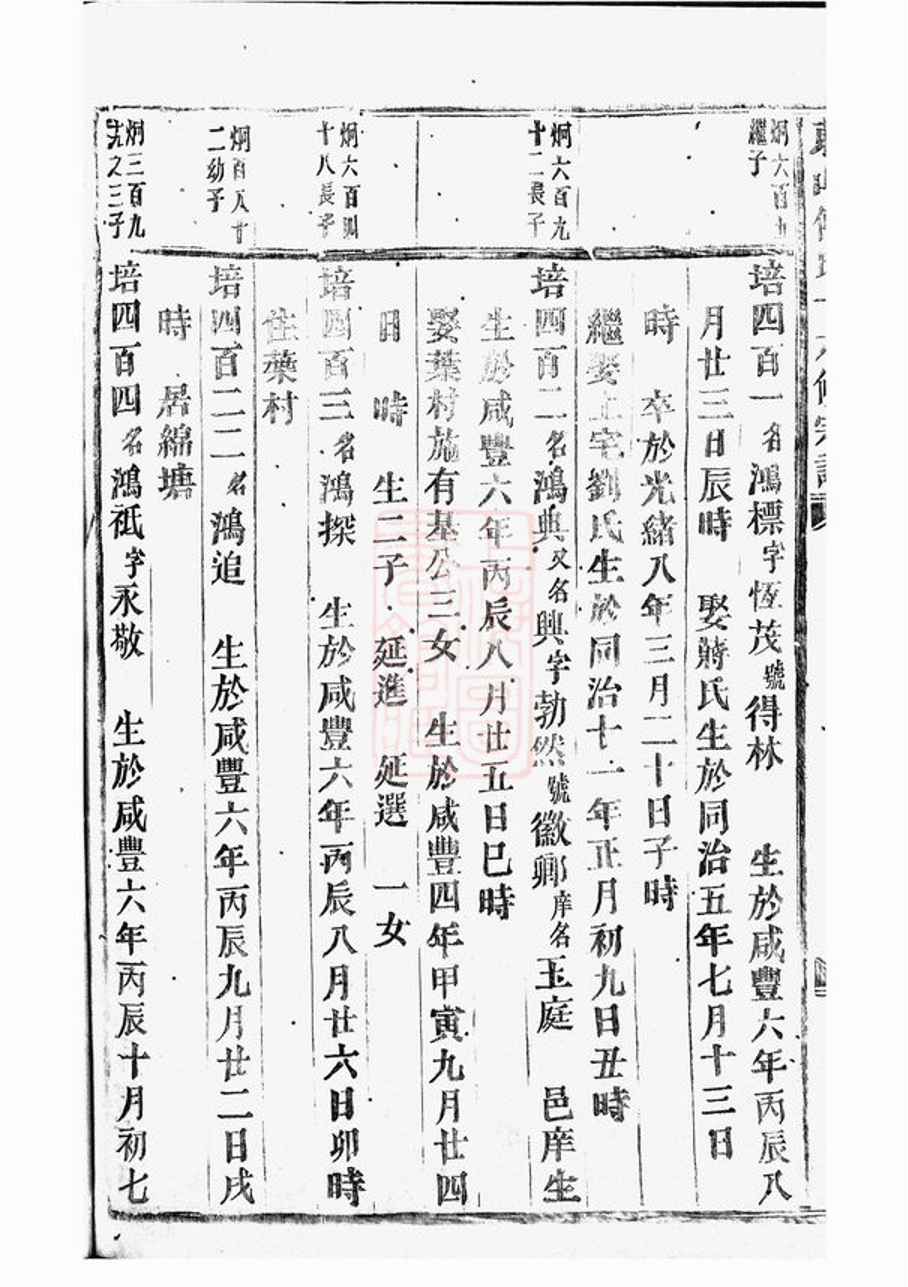 炯六百九
繼子
培四百一名鴻標字恆茂號得林 生於咸豐六年丙辰八
月廿三日辰時 娶蔣氏生於同治五年七月十三日
時 卒於光緒八年三月二十日子時
繼娶上宅劉氏生於同治十一年正月初九日丑時
炯六百九
十二長子
培四百二名鴻典又名興字勃然號徽鄉庠名玉庭 邑庠生
生於咸豐六年丙辰八月廿五日巳時
娶葉村施有基公三女 生於咸豐四年甲寅九月廿四
日 時 生二子 延進 延選 一女
炯六百四
十八長子
培四百三名鴻探 生於咸豐六年丙辰八月廿六日卯時
住葉村
炯百八十
二幼子
培四百二二名鴻追 生於咸豐六年丙辰九月廿二日戌
時 居綿塘
炯三百九
之三子
培四百四名鴻祗字永敬 生於咸豐六年丙辰十月初七